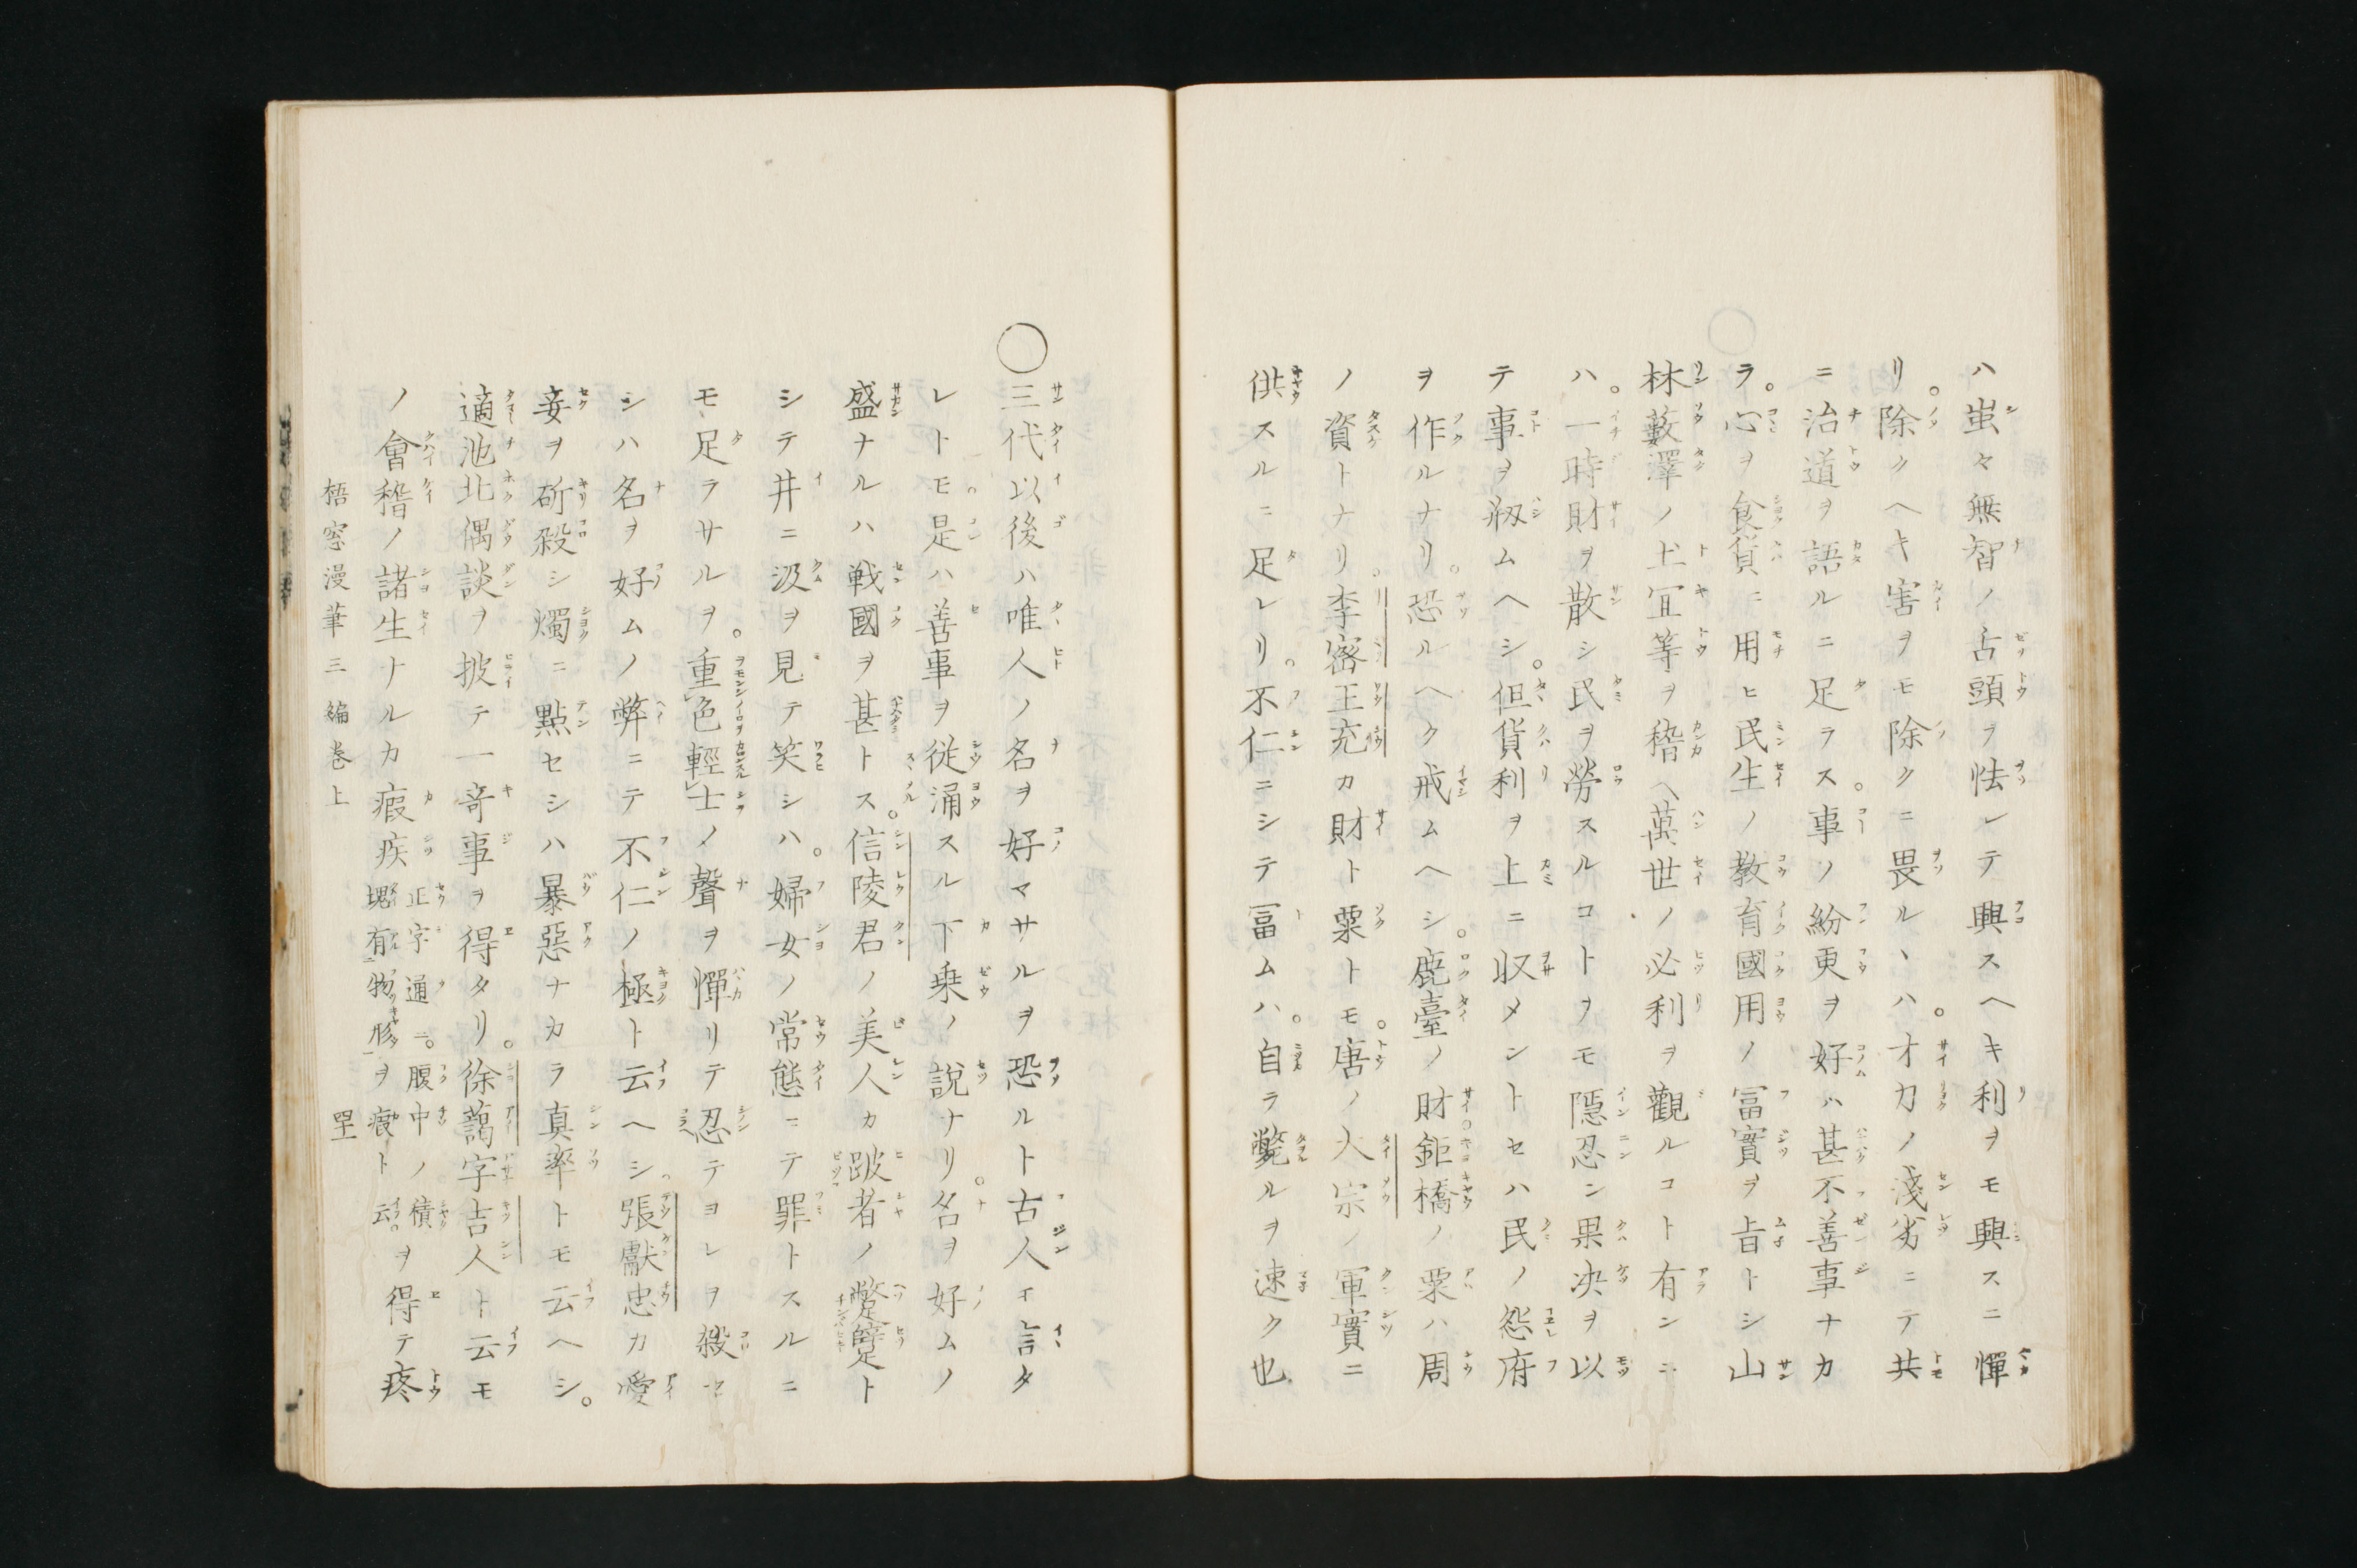 ハ蚩々無智ノ舌頭ヲ怯レテ興スヘキ利ヲモ興スニ憚
リ。除クヘキ害ヲモ除クニ畏ルヽハ。才力ノ淺劣ニテ共
ニ治道ヲ語ルニ足ラス。事ノ紛更ヲ好ハ甚不善事ナカ
ラ。心ヲ食貨ニ用ヒ民生ノ教育國用ノ冨實ヲ旨トシ山
林藪澤ノ土冝等ヲ稽ヘ萬世ノ必利ヲ觀ルコト有ンニ
ハ。一時財ヲ散シ民ヲ勞スルコトヲモ隱忍ン果決ヲ以
テ事ヲ剏ムヘシ。但貨利ヲ上ニ収メントセハ民ノ怨府
ヲ作ルナリ。恐ルヘク戒ムヘシ。鹿臺ノ財鉅橋ノ粟ハ周
ノ資トナリ。李宻王充カ財ト粟トモ。唐ノ大宗ノ軍實ニ
供スルニ足レリ。不仁ニシテ冨ムハ。自ラ斃ルヲ速ク也
〇三代以後ハ唯人ノ名ヲ好マサルヲ恐ルト古人モ言タ
レトモ是ハ善事ヲ従涌スル下乗ノ說ナリ。名ヲ好ムノ
盛ナルハ戦國ヲ甚トス。信陵君ノ美人カ跛者ノ蹩躠ト
シテ井ニ汲ヲ見テ笑シハ。婦女ノ常態ニテ罪トスルニ
モ足ラサルヲ。重色輕士ノ聲ヲ憚リテ忍テヨレヲ殺セ
シハ名ヲ好ムノ弊ニテ不仁ノ極ト云ヘシ。張獻忠カ愛
妾ヲ斫殺シ燭ニ點セシハ暴惡ナカラ真率トモ云ヘシ。
適池北偶談ヲ披テ一竒事ヲ得タリ。徐藹字吉人ト云モ
ノ會稽ノ諸生ナルカ瘕疾正字通ニ。腹中ノ積塊有物形ヲ瘕ト云。ヲ得テ疼
梧窓漫筆三編巻上